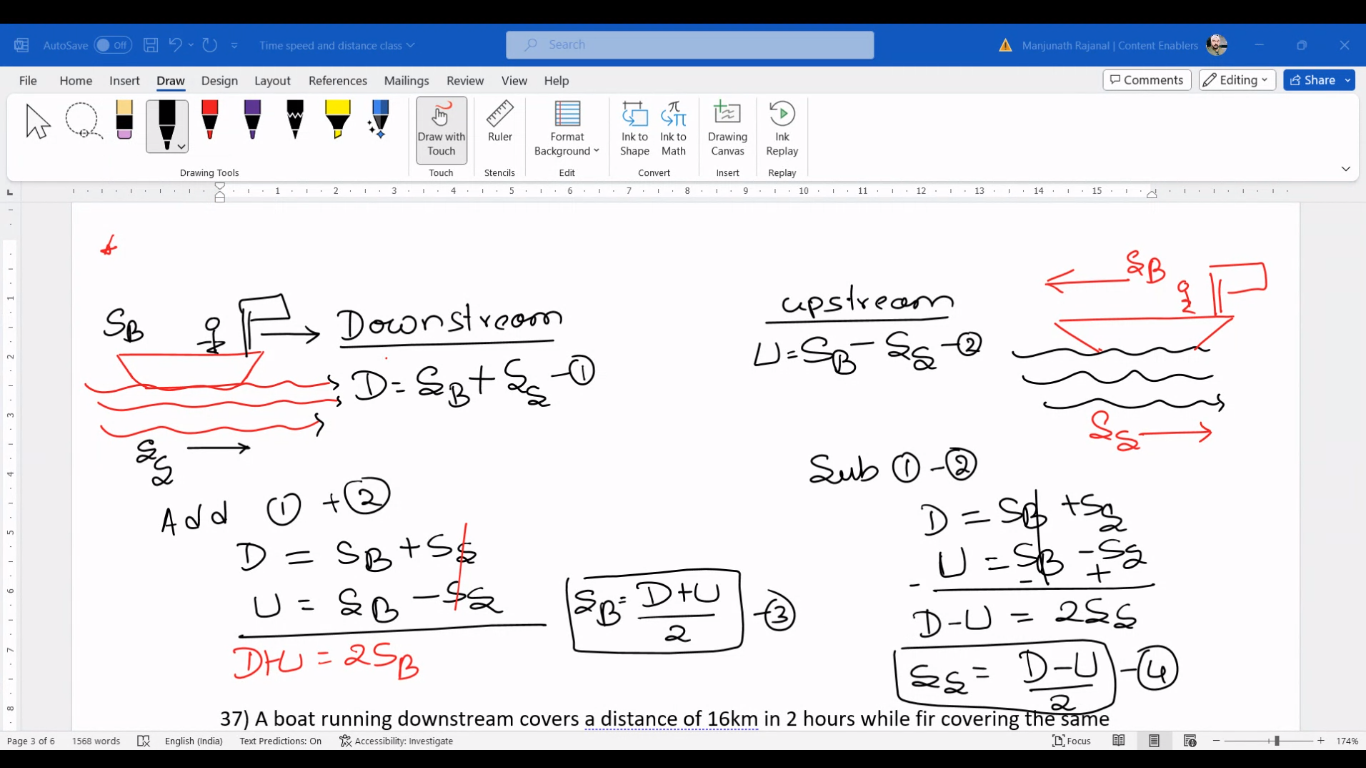 AutoSave Off Time speed and distance class Search Manjunath Rajanal | Content Enablers
File Home Insert Draw Design Layout References Mailings Review View Help Comments Editing Share
Draw with Touch Ruler Format Background Ink to Shape Ink to Math Drawing Canvas Ink Replay
Drawing Tools Touch Stencils Edit Convert Insert Replay
2 1 1 2 3 4 5 6 7 8 9 10 11 12 13 14 15
SB
Downstream
D = SB + SS - ①
SS
upstream
U = SB - SS - ②
SB
SS
Add ① + ②
D = SB + SS
U = SB - SS
D+U = 2SB
SB = D+U
2
- ③
Sub ① - ②
D = SB + SS
U = SB - SS
- - +
D-U = 2SS
SS = D-U
2
- ④
37) A boat running downstream covers a distance of 16km in 2 hours while fir covering the same
Page 3 of 6 1568 words English (India) Text Predictions: On Accessibility: Investigate Focus 174%